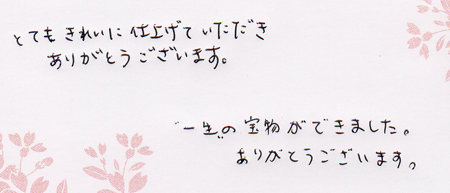 とてもきれいに仕上げていただき
ありがとうございます。
"一生"の宝物ができました。
ありがとうございます。